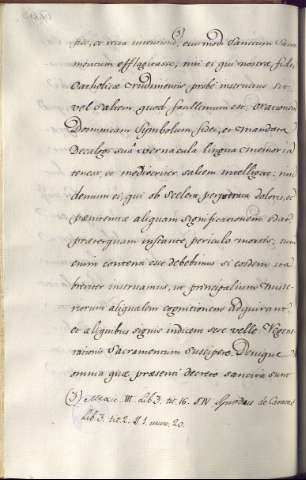 fit, et vera intentione, eumdem Sanctum Sacra
mentum effugiasse, nisi ei qui nostræ fidei
Catholicæ crudimentis probè instructus sit
vel saltem quod facillimum est, orationem
Dominicam Symbolum fidei, et mandata
Decalogi suâ vernacula lingua memoria
teneat, et mediocriter saltem intelligat: nisi
demum ei, qui ob scelera perpetrata doloris, et
pænitentiæ aliquam significationem edat
præterquam instante periculo mortis, tunc
enim contenti esse debebimus si eosdem ita
breviter instruamus, ut principalium miste
reorum aliqualem cognitionem adquirant
et aliquibus signis indicent se velle Regene
rationis Sacramentum suscipere. Denique
omnia quæ præsenti decreto sancita sunt
(3) Mexic. III. Lib. 3. tit. 16. § IV Synodus de Caracas
Lib. 3. tit. 2. § 1. num. 20.